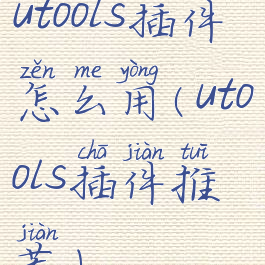 utools插件
zěn me yòng
怎么用(uto
chā jiàn tuī
ols插件推
jiàn
荐)